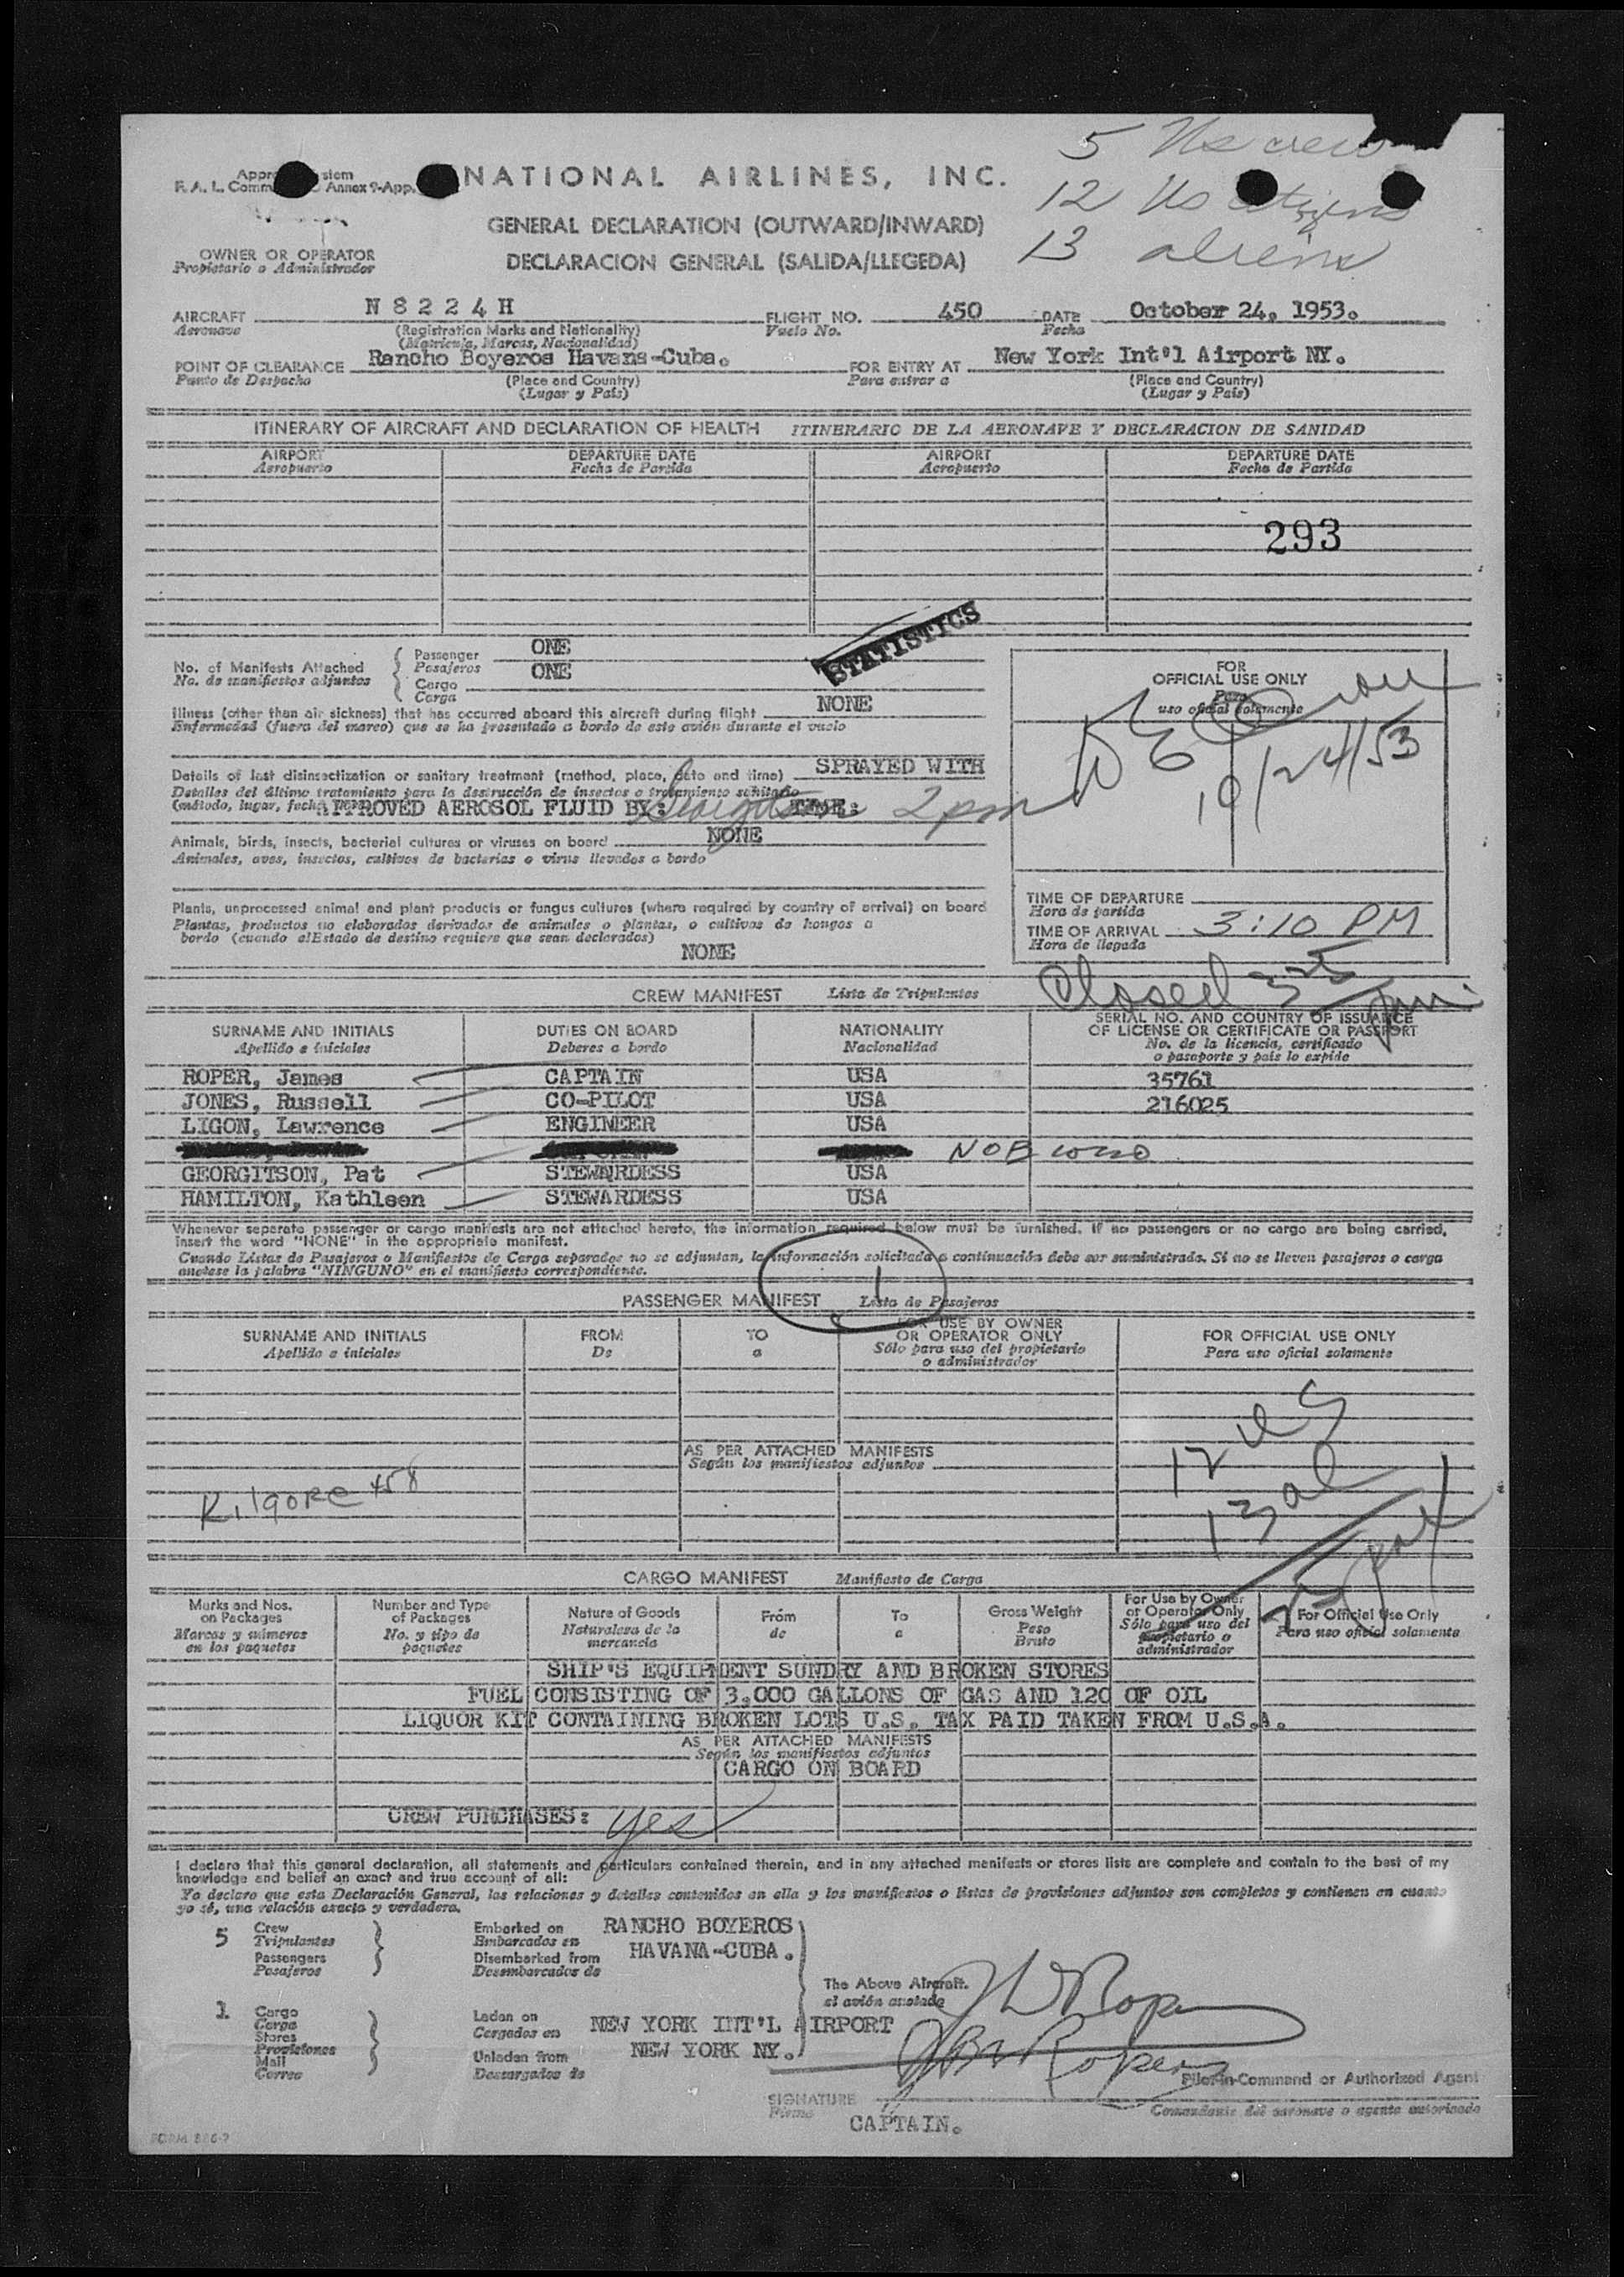 5 Us crew
12 Us citizens
13 aliens
NATIONAL AIRLINES, INC.
F. A. L. Annex 9-App.
GENERAL DECLARATION (OUTWARD/INWARD)
DECLARACION GENERAL (SALIDA/LLEGEDA)
OWNER OR OPERATOR
Propietario o Administrador
AIRCRAFT N 8 2 2 4 H FLIGHT NO. 450 DATE October 24, 1953.
Aeronave (Registration Marks and Nationality) Vuelo No. Fecha
(Matricula, Marcas, Nacionalidad)
POINT OF CLEARANCE Rancho Boyeros Havana-Cuba. FOR ENTRY AT New York Int'l Airport NY.
Punto de Despacho (Place and Country) Para entrar a (Place and Country)
(Lugar y País) (Lugar y País)
ITINERARY OF AIRCRAFT AND DECLARATION OF HEALTH ITINERARIO DE LA AERONAVE Y DECLARACION DE SANIDAD
AIRPORT DEPARTURE DATE AIRPORT DEPARTURE DATE
Aeropuerto Fecha de Partida Aeropuerto Fecha de Partida
293
STATISTICS
No. of Manifests Attached Passenger ONE
No. de manifiestos adjuntos Pasajeros ONE
Cargo
Carga
Illness (other than air sickness) that has occurred aboard this aircraft during flight NONE
Enfermedad (fuera del mareo) que se ha presentado a bordo de este avión durante el vuelo
Details of last disinsectization or sanitary treatment (method, place, date and time) SPRAYED WITH
Detalles del último tratamiento para la destrucción de insectos o tratamiento sanitario
(método, lugar, fecha APPROVED AEROSOL FLUID BY: TIME: 2 pm
Animals, birds, insects, bacterial cultures or viruses on board NONE
Animales, aves, insectos, cultivos de bacterias o virus llevados a bordo
Plants, unprocessed animal and plant products or fungus cultures (where required by country of arrival) on board
Plantas, productos no elaborados derivados de animales o plantas, o cultivos de hongos a
bordo (cuando el Estado de destino requiere que sean declarados)
NONE
FOR
OFFICIAL USE ONLY
Para
uso oficial solamente
10/24/53
TIME OF DEPARTURE
Hora de partida
TIME OF ARRIVAL 3:10 PM
Hora de llegada
Closed 3 25 pm
CREW MANIFEST Lista de Tripulantes
SURNAME AND INITIALS DUTIES ON BOARD NATIONALITY SERIAL NO. AND COUNTRY OF ISSUANCE
OF LICENSE OR CERTIFICATE OR PASSPORT
Apellido e iniciales Deberes a bordo Nacionalidad No. de la licencia, certificado
o pasaporte y país lo expide
ROPER, James CAPTAIN USA 35761
JONES, Russell CO-PILOT USA 216025
LIGON, Lawrence ENGINEER USA
GEORGITSON, Pat STEWARDESS USA
HAMILTON, Kathleen STEWARDESS USA
Whenever separate passenger or cargo manifests are not attached hereto, the information required below must be furnished. If no passengers or no cargo are being carried,
insert the word "NONE" in the appropriate manifest.
Cuando Listas de Pasajeros o Manifiestos de Carga separados no se adjuntan, la información solicitada a continuación debe ser suministrada. Si no se lleven pasajeros o carga
anótese la palabra "NINGUNO" en el manifiesto correspondiente.
1
PASSENGER MANIFEST Lista de Pasajeros
SURNAME AND INITIALS FROM TO FOR USE BY OWNER OR OPERATOR ONLY FOR OFFICIAL USE ONLY
Apellido e iniciales De a Sólo para uso del propietario o administrador Para uso oficial solamente
AS PER ATTACHED MANIFESTS
Según los manifiestos adjuntos
Kilgore 458
12 US
13 al
25 pax
CARGO MANIFEST Manifiesto de Carga
Marks and Nos. on Packages Number and Type of Packages Nature of Goods From To Gross Weight For Use by Owner or Operator Only For Official Use Only
Marcas y números en los paquetes No. y tipo de paquetes Naturaleza de la mercancía de a Peso Bruto Sólo para uso del propietario o administrador Para uso oficial solamente
SHIP'S EQUIPMENT SUNDRY AND BROKEN STORES
FUEL CONSISTING OF 3,000 GALLONS OF GAS AND 120 OF OIL
LIQUOR KIT CONTAINING BROKEN LOTS U.S. TAX PAID TAKEN FROM U.S.A.
AS PER ATTACHED MANIFESTS
Según los manifiestos adjuntos
CARGO ON BOARD
CREW PURCHASES: yes
I declare that this general declaration, all statements and particulars contained therein, and in any attached manifests or stores lists are complete and contain to the best of my
knowledge and belief an exact and true account of all:
Yo declaro que esta Declaración General, las relaciones y detalles contenidos en ella y los manifiestos o listas de provisiones adjuntos son completos y contienen en cuanto
yo sé, una relación exacta y verdadera.
5 Crew Embarked on RANCHO BOYEROS
Tripulantes Embarcados en
Passengers Disembarked from HAVANA-CUBA.
Pasajeros Desembarcados de
The Above Aircraft.
el avión anotado
1 Cargo Laden on NEW YORK INT'L AIRPORT
Carga Cargados en
Stores
Provisiones Unladen from NEW YORK NY.
Mail Descargados de
Correo
J W Roper
Pilot-in-Command or Authorized Agent
SIGNATURE
Firma Comandante del aeronave o agente autorizado
CAPTAIN.
FORM 886-9